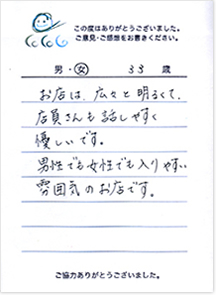 この度はありがとうございました。
ご意見・ご感想をお書きください。
男・女 33 歳
お店は、広々と明るくて、
店員さんも話しやすく
優しいです。
男性でも女性でも入りやすい
雰囲気のお店です。
ご協力ありがとうございました。